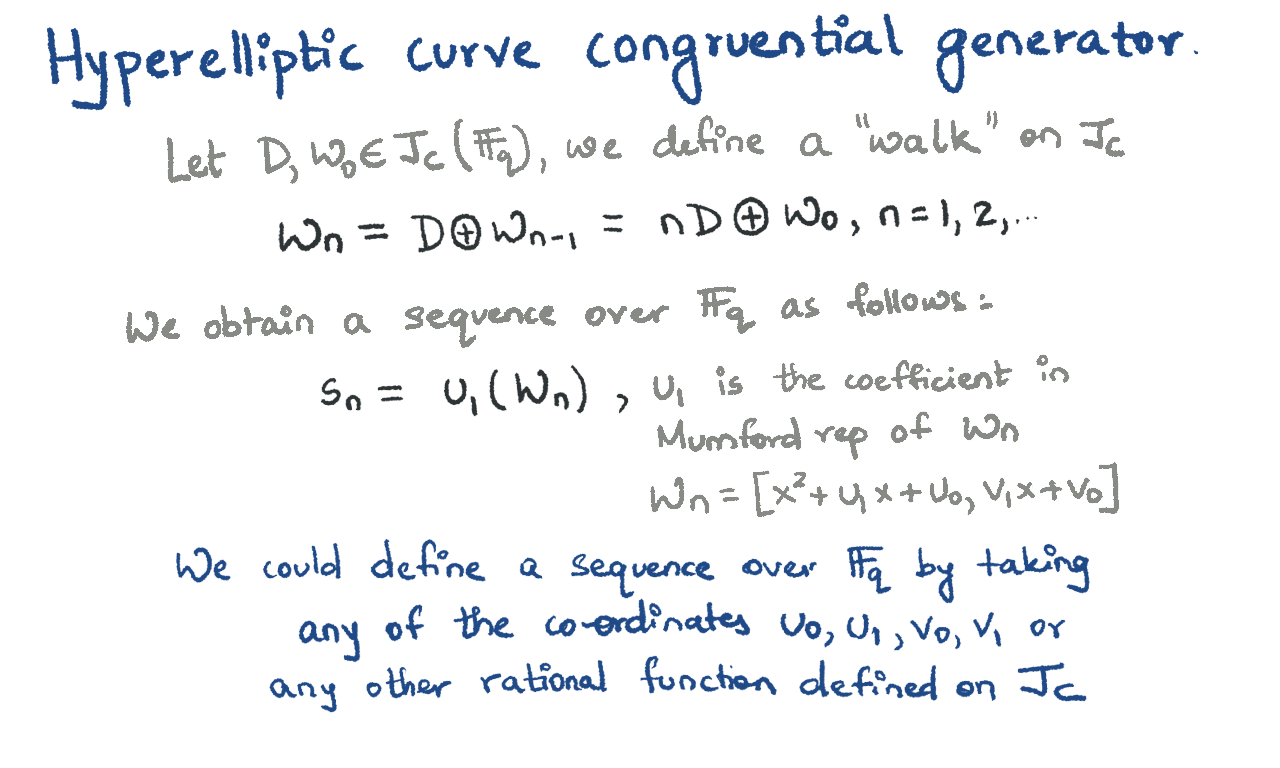 Hyperelliptic curve congruential generator.
Let D, W₀ ∈ J_C(𝔽_q), we define a "walk" on J_C
W_n = D ⊕ W_{n-1} = nD ⊕ W₀, n = 1, 2, ...
We obtain a sequence over 𝔽_q as follows:
S_n = U₁(W_n), U₁ is the coefficient in
Mumford rep of W_n
W_n = [x² + U₁x + U₀, V₁x + V₀]
We could define a sequence over 𝔽_q by taking
any of the co-ordinates U₀, U₁, V₀, V₁ or
any other rational function defined on J_C